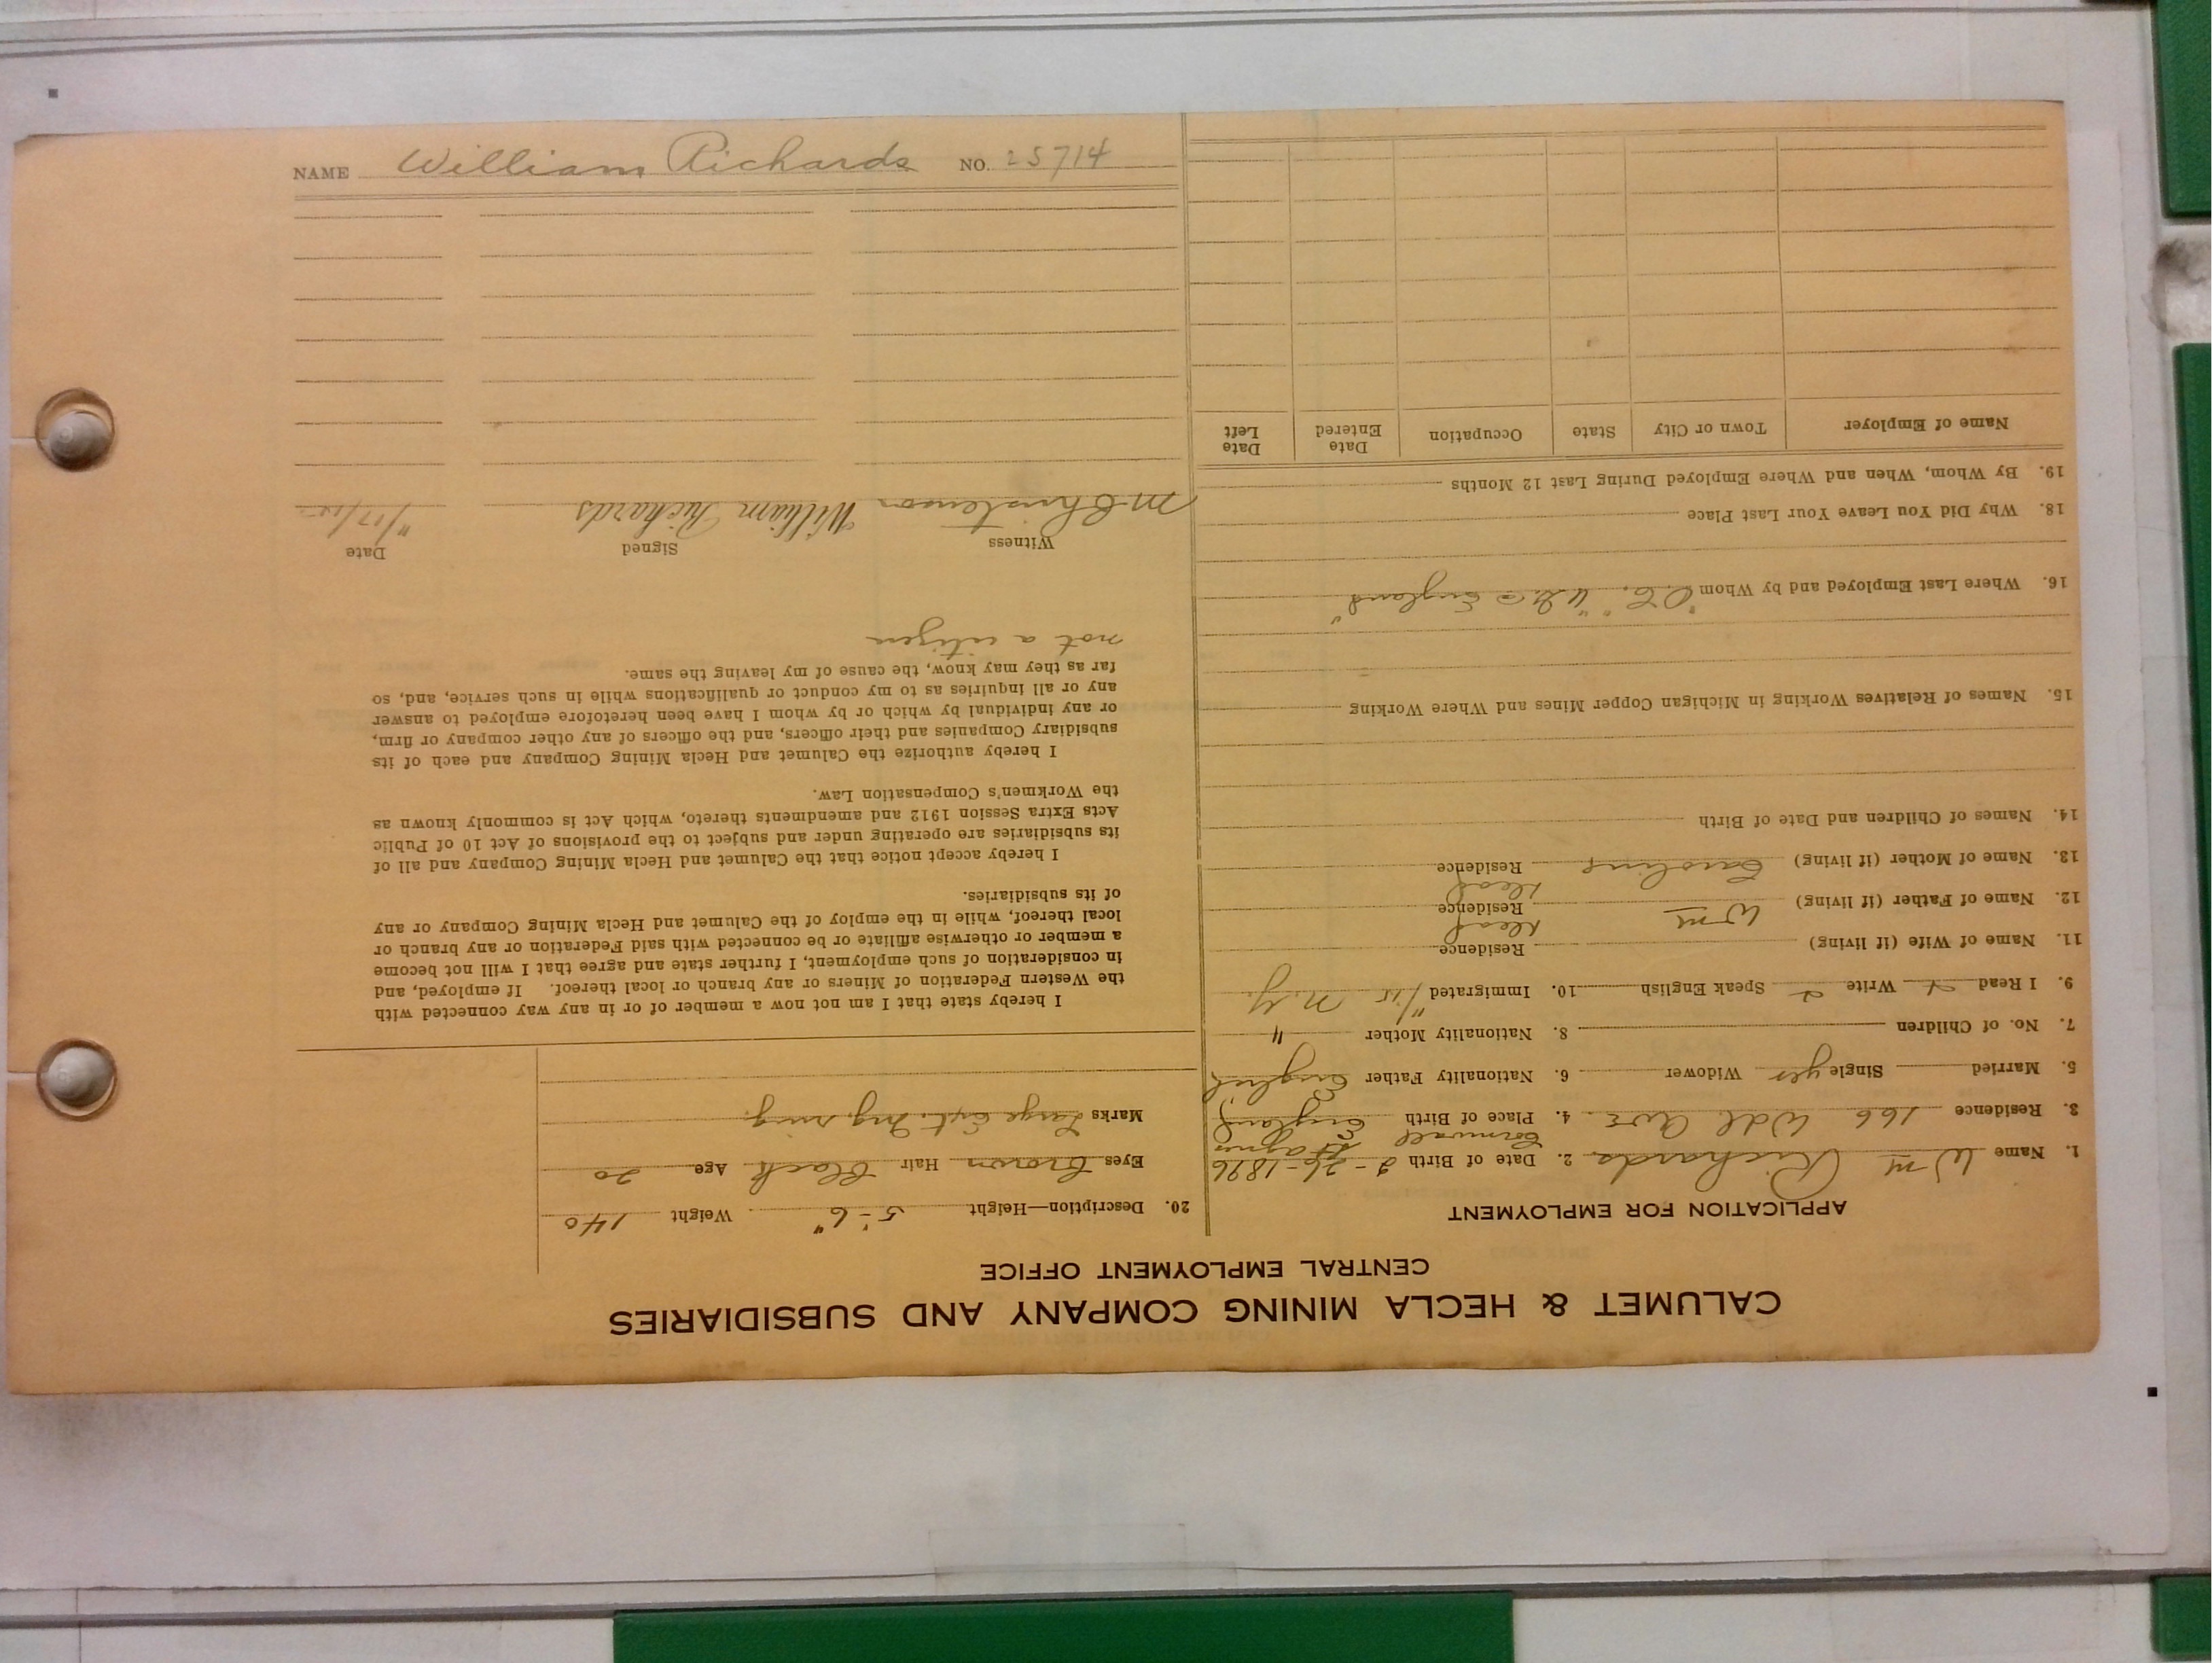 CALUMET & HECLA MINING COMPANY AND SUBSIDIARIES
CENTRAL EMPLOYMENT OFFICE
APPLICATION FOR EMPLOYMENT
1. Name Wm Richards 2. Date of Birth 2-26-1896
Cornwall St Agnes
3. Residence 166 Wdl Ave 4. Place of Birth England
5. Married Single yes Widower 6. Nationality Father English
7. No. of Children 8. Nationality Mother "
9. I Read Write Speak English 10. Immigrated 11/15 N.Y.
11. Name of Wife (if living) Residence
12. Name of Father (if living) Wm Residence Dead
13. Name of Mother (if living) Caroline Residence Dead
14. Names of Children and Date of Birth
15. Names of Relatives Working in Michigan Copper Mines and Where Working
16. Where Last Employed and by Whom England
18. Why Did You Leave Your Last Place
19. By Whom, When and Where Employed During Last 12 Months
Name of Employer Town or City State Occupation Date Entered Date Left
20. Description—Height 5'-6" Weight 140
Eyes Brown Hair Black Age 20
Marks Large
I hereby state that I am not now a member of or in any way connected with
the Western Federation of Miners or any branch or local thereof. If employed, and
in consideration of such employment, I further state and agree that I will not become
a member or otherwise affiliate or be connected with said Federation or any branch or
local thereof, while in the employ of the Calumet and Hecla Mining Company or any
of its subsidiaries.
I hereby accept notice that the Calumet and Hecla Mining Company and all of
its subsidiaries are operating under and subject to the provisions of Act 10 of Public
Acts Extra Session 1912 and amendments thereto, which Act is commonly known as
the Workmen's Compensation Law.
I hereby authorize the Calumet and Hecla Mining Company and each of its
subsidiary Companies and their officers, and the officers of any other company or firm,
or any individual by which or by whom I have been heretofore employed to answer
any or all inquiries as to my conduct or qualifications while in such service, and, so
far as they may know, the cause of my leaving the same.
not a citizen
Witness Signed Date
M Christenson William Richards 11/17/15
NAME William Richards NO. 25714